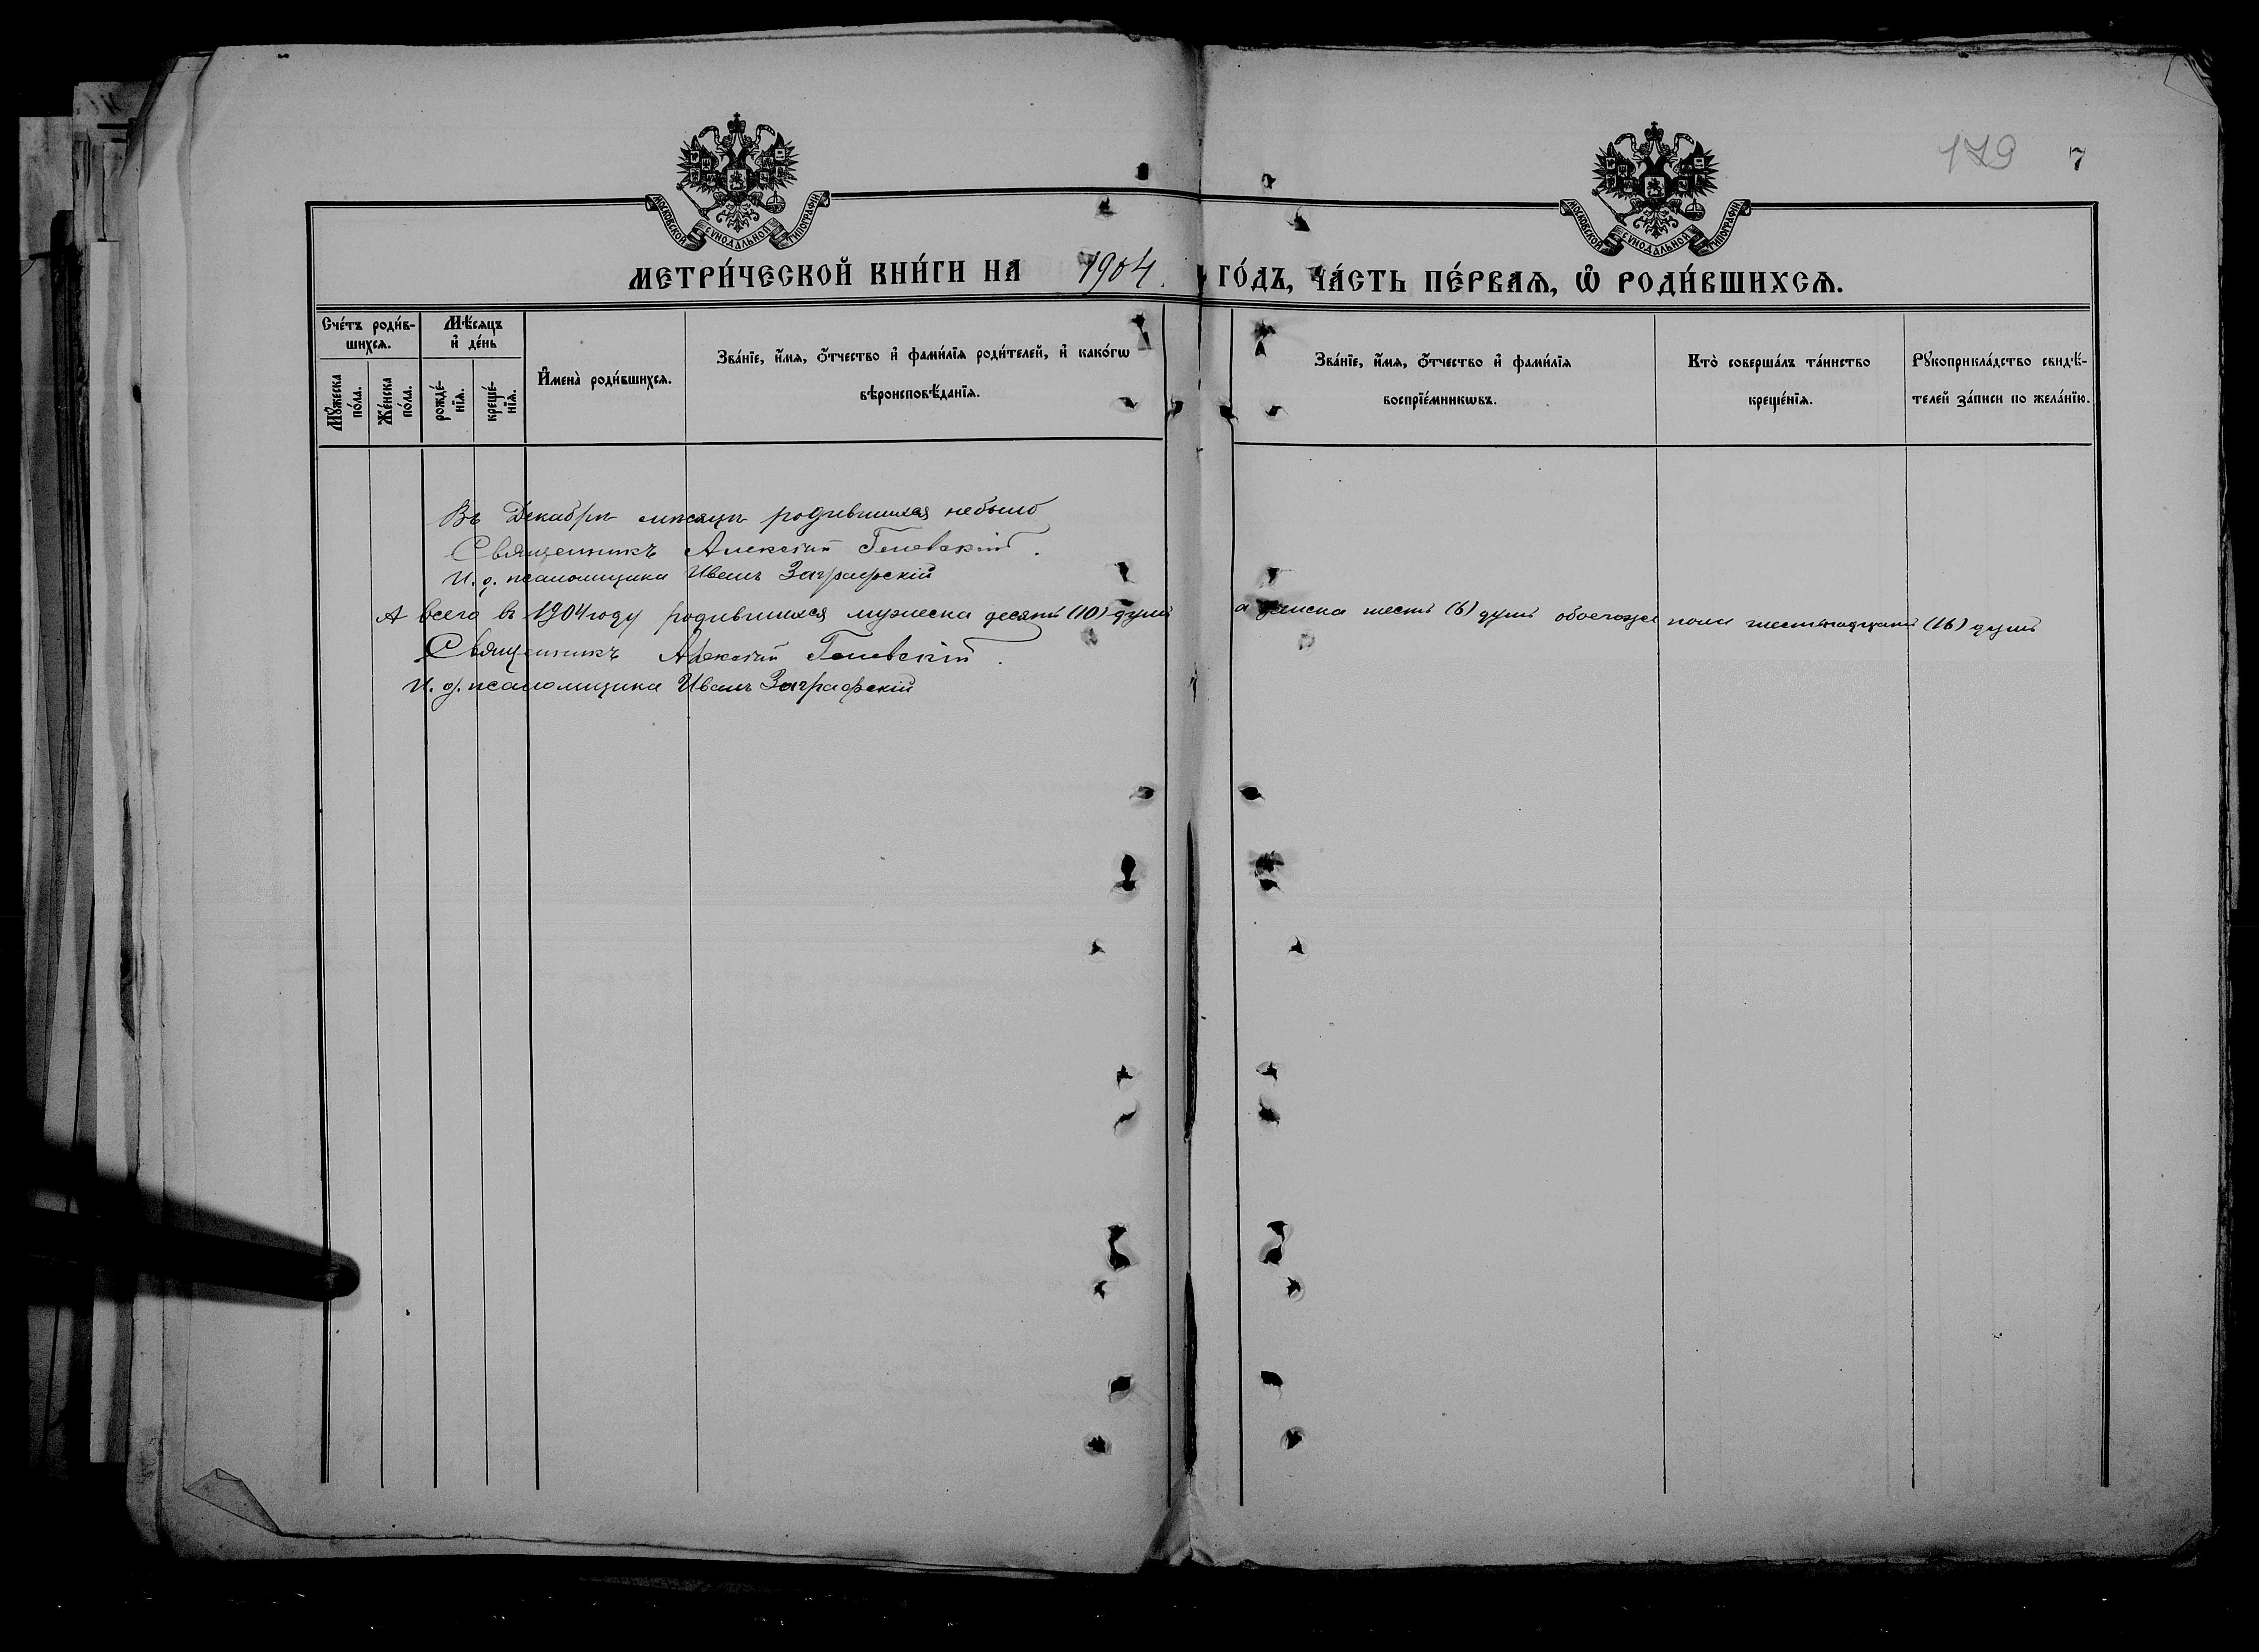 179 7
МОСКОВСКОЙ СУНОДАЛЬНОЙ ТИПОГРАФІИ.
МОСКОВСКОЙ СУНОДАЛЬНОЙ ТИПОГРАФІИ.
МЕТРИ́ЧЕСКОЙ КНИ́ГИ НА 1904. ГО́ДЪ, ЧА́СТЬ ПЕ́РВАѦ, Ѡ҆ РОДИ́ВШИХСѦ.
Сче́тъ роди́в-
шихсѧ.
Мꙋ́жеска
по́ла.
Же́нска
по́ла.
Мѣ́сѧцъ
и҆ де́нь
рожде́-
нїѧ.
креще́-
нїѧ.
И҆мена̀ роди́вшихсѧ.
Зва́нїе, и҆́мѧ, ѻ҆́тчество и҆ фами́лїѧ роди́телей, и҆ како́гѡ
вѣроисповѣ́данїѧ.
Зва́нїе, и҆́мѧ, ѻ҆́тчество и҆ фами́лїѧ
воспрїе́мникѡвъ.
Кто̀ соверша́лъ та́инство
креще́нїѧ.
Рꙋкоприкла́дство свидѣ́-
телей за́писи по жела́нїю.
Въ Декабрѣ мѣсяцѣ родившихся небыло
Священникъ Алексѣй
И. д. псаломщика Иванъ Заграфскій
А всего въ 1904 году родившихся мужеска десять (10) душъ а женска шесть (6) душъ обоегоже пола шестнадцать (16) душъ
Священникъ Алексѣй
И. д. псаломщика Иванъ Заграфскій